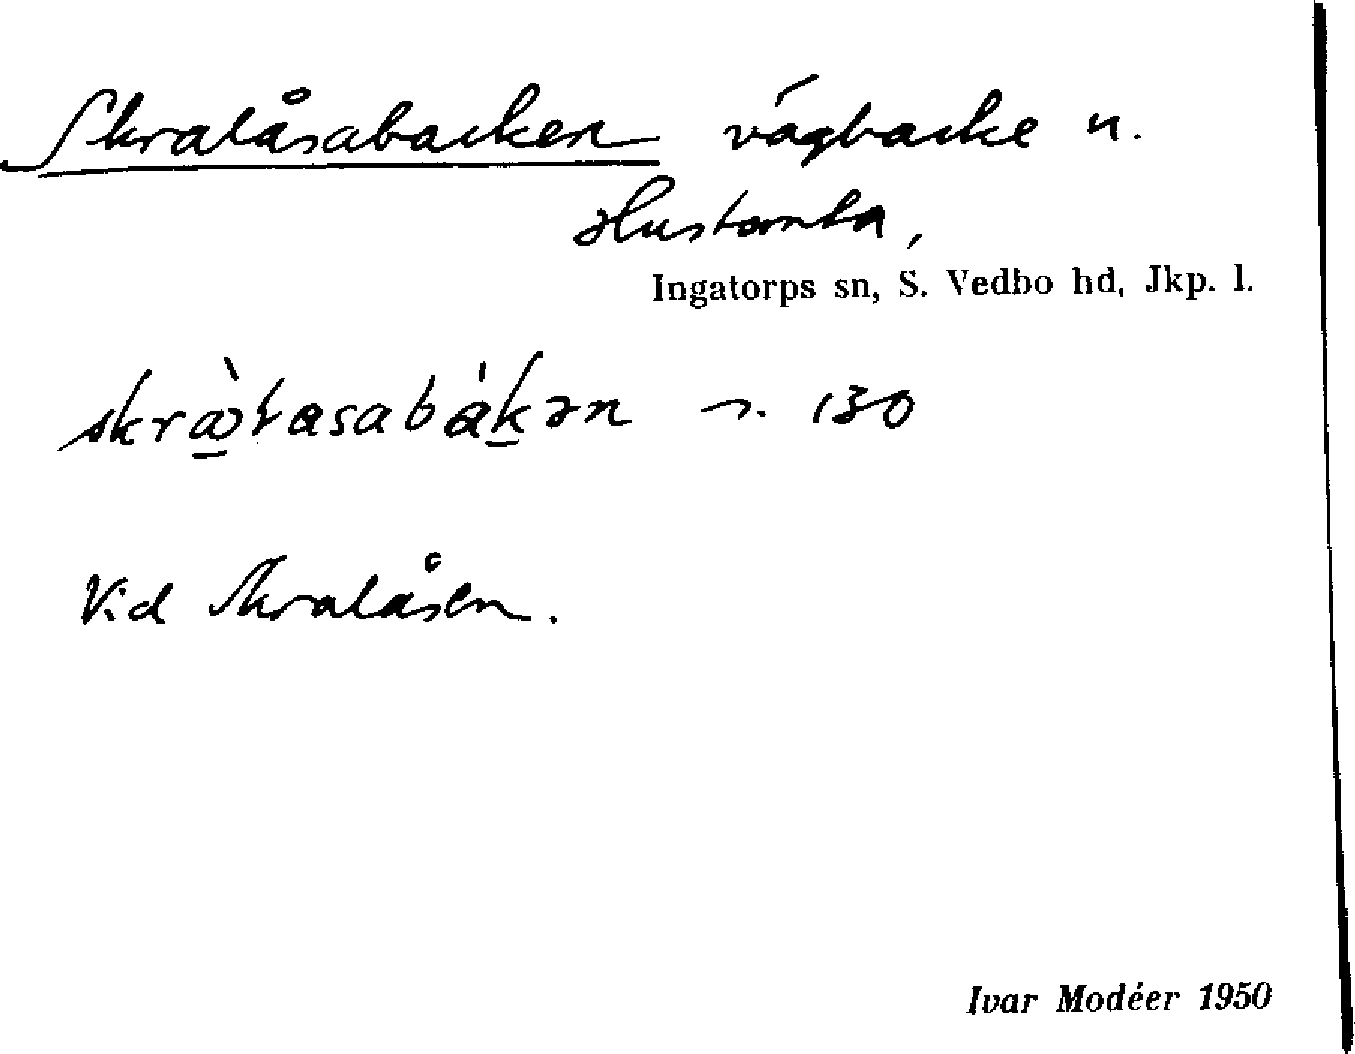 Skralåsabacken vägbacke n.
Hustomta,
Ingatorps sn, S. Vedbo hd, Jkp. l.
130
Vid Skralåsen.
Ivar Modéer 1950